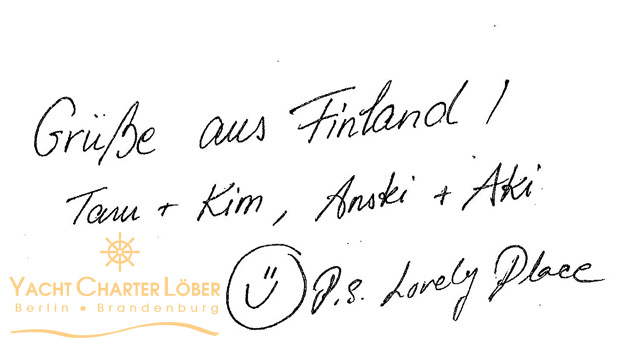 Grüße aus Finland!
Taru + Kim, Anski + Aki
P.S. Lovely Place
YACHT CHARTER LÖBER
Berlin • Brandenburg